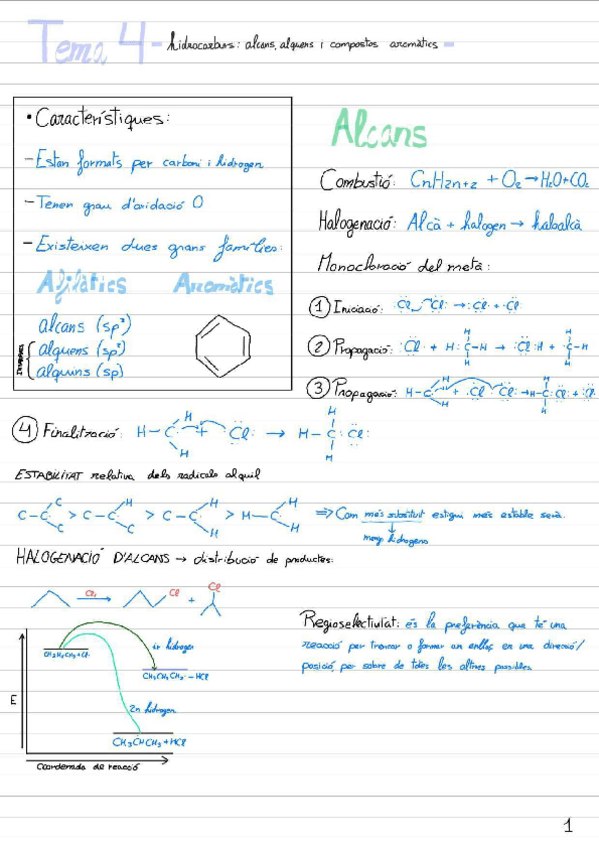 Tema 4 - hidrocarburs: alcans, alquens i compostos aromàtics -
• Característiques:
- Estan formats per carboni i hidrogen
- Tenen grau d'oxidació 0
- Existeixen dues grans famílies:
Alifàtics Aromàtics
alcans (sp³)
alquens (sp²)
alquins (sp)
Alcans
Combustió: CnH2n+2 + O2 → H2O + CO2
Halogenació: Alcà + halogen → haloalcà
Monocloració del metà:
1 Iniciació: Cl Cl → Cl + Cl
2 Propagació: Cl + H : C - H → Cl : H + C - H
3 Propagació: H - C + Cl Cl → H - C : Cl : + Cl
4 Finalització: H - C + Cl → H - C : Cl
ESTABILITAT relativa dels radicals alquil
C - C > C - C > C - C > H - C ⇒ Com més substituït estigui més estable serà.
menys hidrogens
HALOGENACIÓ D'ALCANS → distribució de productes:
Cl2 Cl + Cl
1r hidrogen
CH3CH2CH3 + Cl·
CH3CH2CH2· - HCl
2n hidrogen
CH3CHCH3 + HCl
E
Coordenada de reacció
Regioselectivitat: és la preferència que té una
reacció per trencar o formar un enllaç en una direcció/
posició per sobre de totes les altres possibles
1